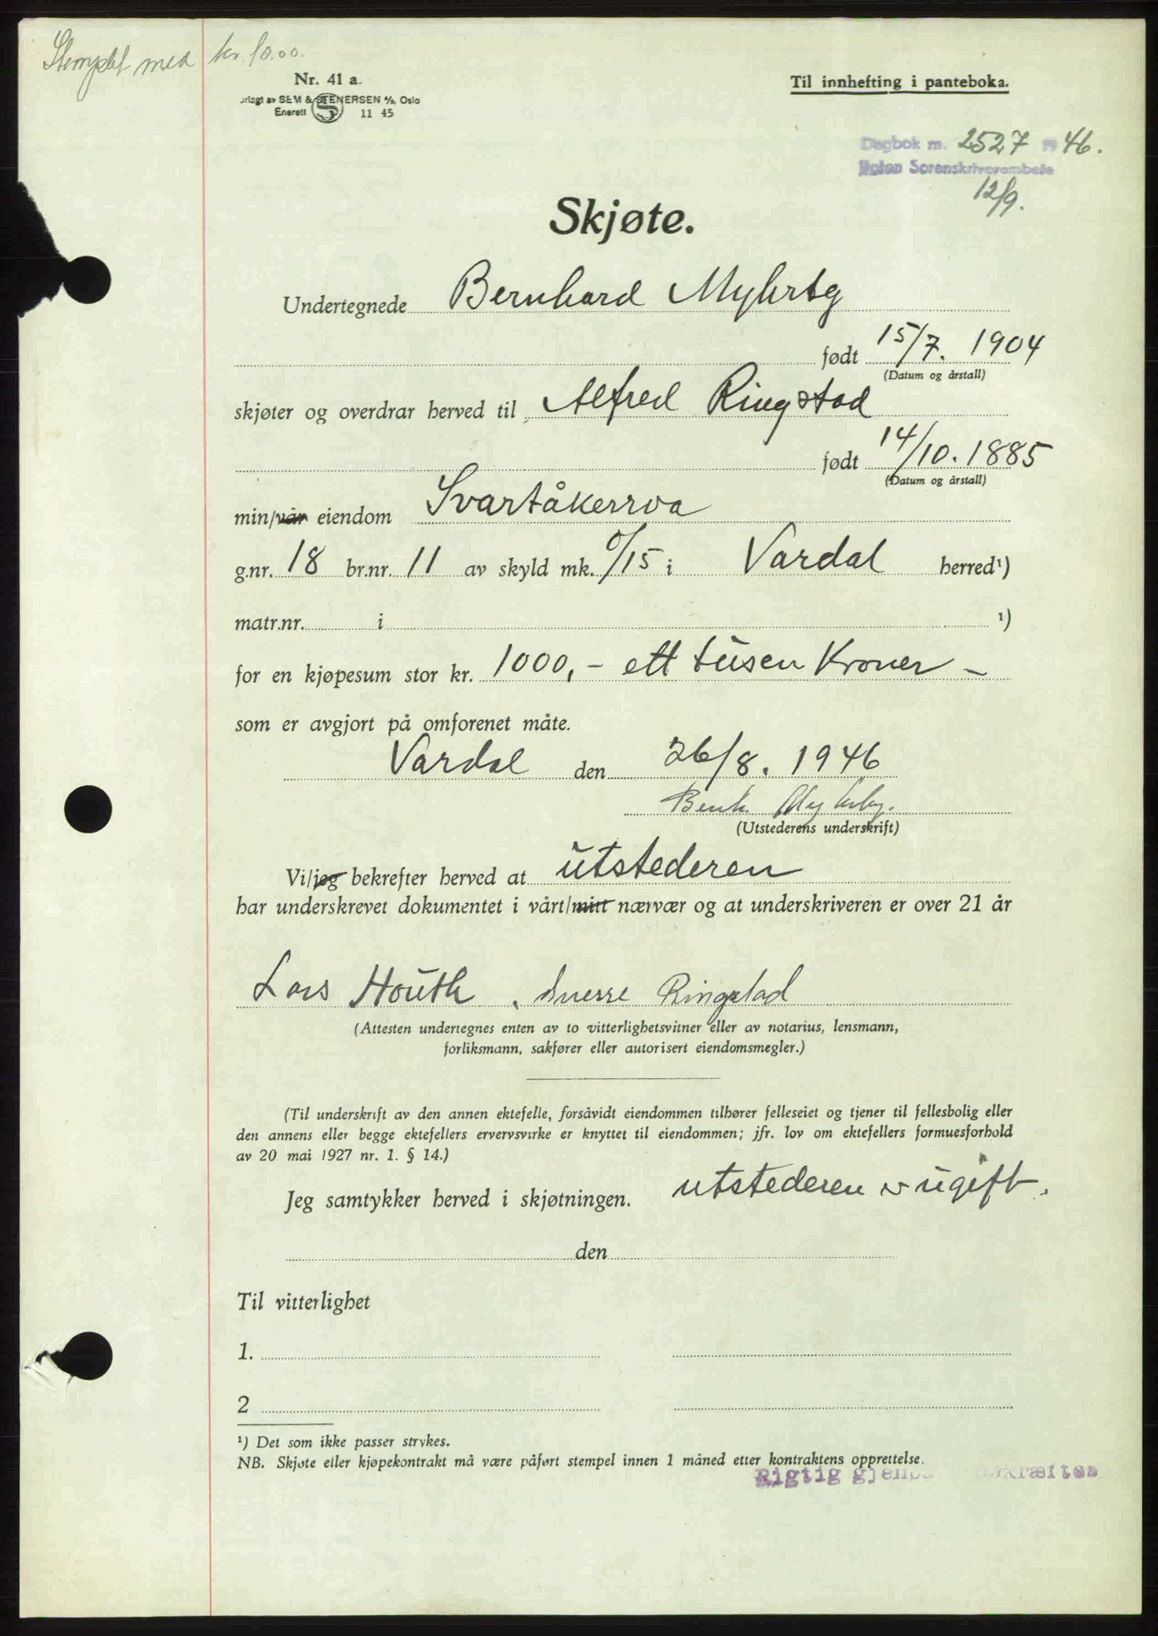 Stemplet med kr. 10.00.
Nr. 41 a.
Til innhefting i panteboka.
orlagt av SEM & STENERSEN A/S, Oslo
Enerett 11 45
Dagbok nr. 2527 1946.
Toten Sorenskriverembete
12/9.
Skjøte.
Undertegnede Bernhard Myhrby
født 15/7. 1904
(Datum og årstall)
skjøter og overdrar herved til Alfred Ringstad
født 14/10. 1885
(Datum og årstall)
min/vår eiendom Svartåkerroa
g.nr. 18 br.nr. 11 av skyld mk. 0/15 i Vardal herred¹)
matr.nr. i ¹)
for en kjøpesum stor kr. 1000,- ett tusen Kroner -
som er avgjort på omforenet måte.
Vardal den 26/8. 1946
Bernh. Myhrby.
(Utstederens underskrift)
Vi/jeg bekrefter herved at utstederen
har underskrevet dokumentet i vårt/mitt nærvær og at underskriveren er over 21 år
Lars Houth , Sverre Ringstad
(Attesten undertegnes enten av to vitterlighetsvitner eller av notarius, lensmann,
forliksmann, sakfører eller autorisert eiendomsmegler.)
(Til underskrift av den annen ektefelle, forsåvidt eiendommen tilhører felleseiet og tjener til fellesbolig eller
den annens eller begge ektefellers ervervsvirke er knyttet til eiendommen; jfr. lov om ektefellers formuesforhold
av 20 mai 1927 nr. 1. § 14.)
Jeg samtykker herved i skjøtningen. utstederen er ugift.
den
Til vitterlighet
1.
2
¹) Det som ikke passer strykes.
NB. Skjøte eller kjøpekontrakt må være påført stempel innen 1 måned etter kontraktens opprettelse.
Rigtig